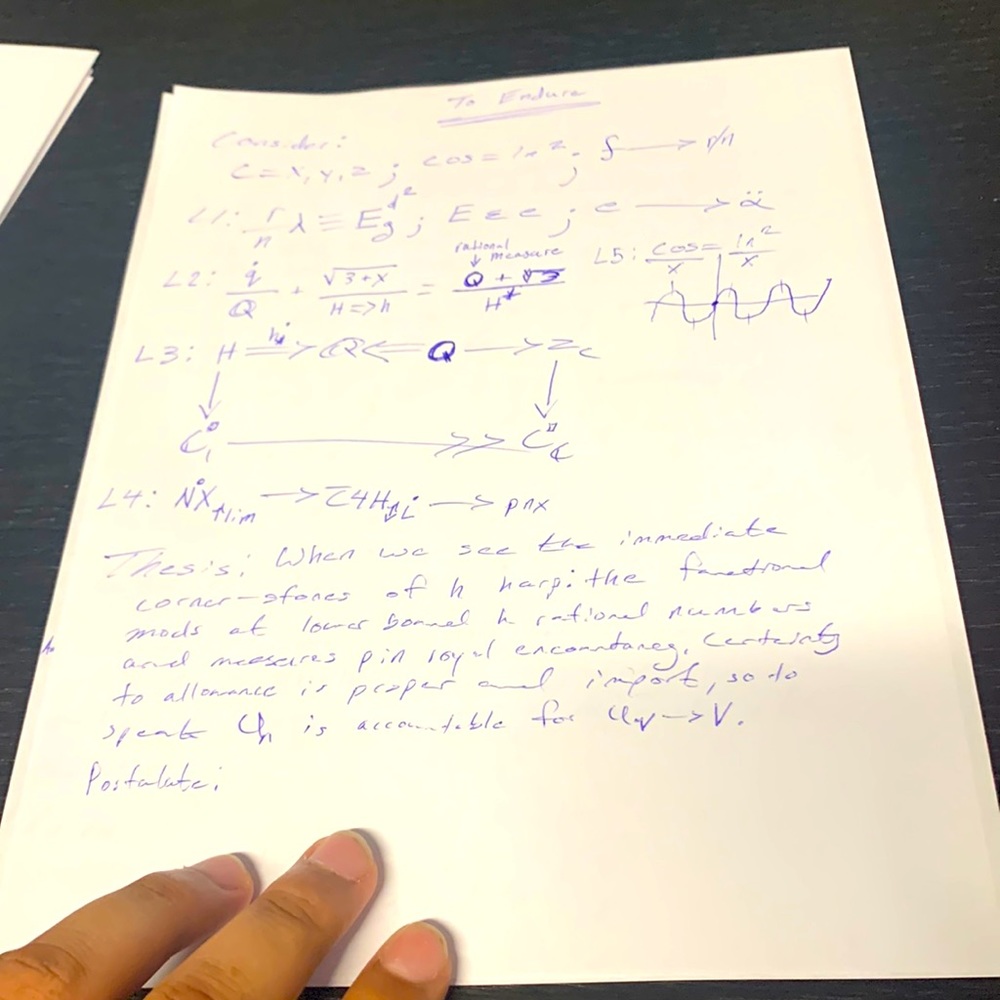 To Endure
Consider:
C = x, y, z ; cos = ln², f → r/n
L1: r/n λ = E ; E ≤ e ; e → ä
rational
↓ measure
L2: q̇/Q + √3+x / H=>h = Q + √3 / H
L5: cos/x = ln²/x
L3: H => Q <= Q → Z
C → C
L4: NX → C4H → pnx
Thesis: When we see the immediate
corner-stones of h harp: the functional
mods at lower bonnel h rational numbers
and measures pin royal encountancy. Certainty
to allowance is proper and import, so to
speak is accountable for → V.
Postulate: